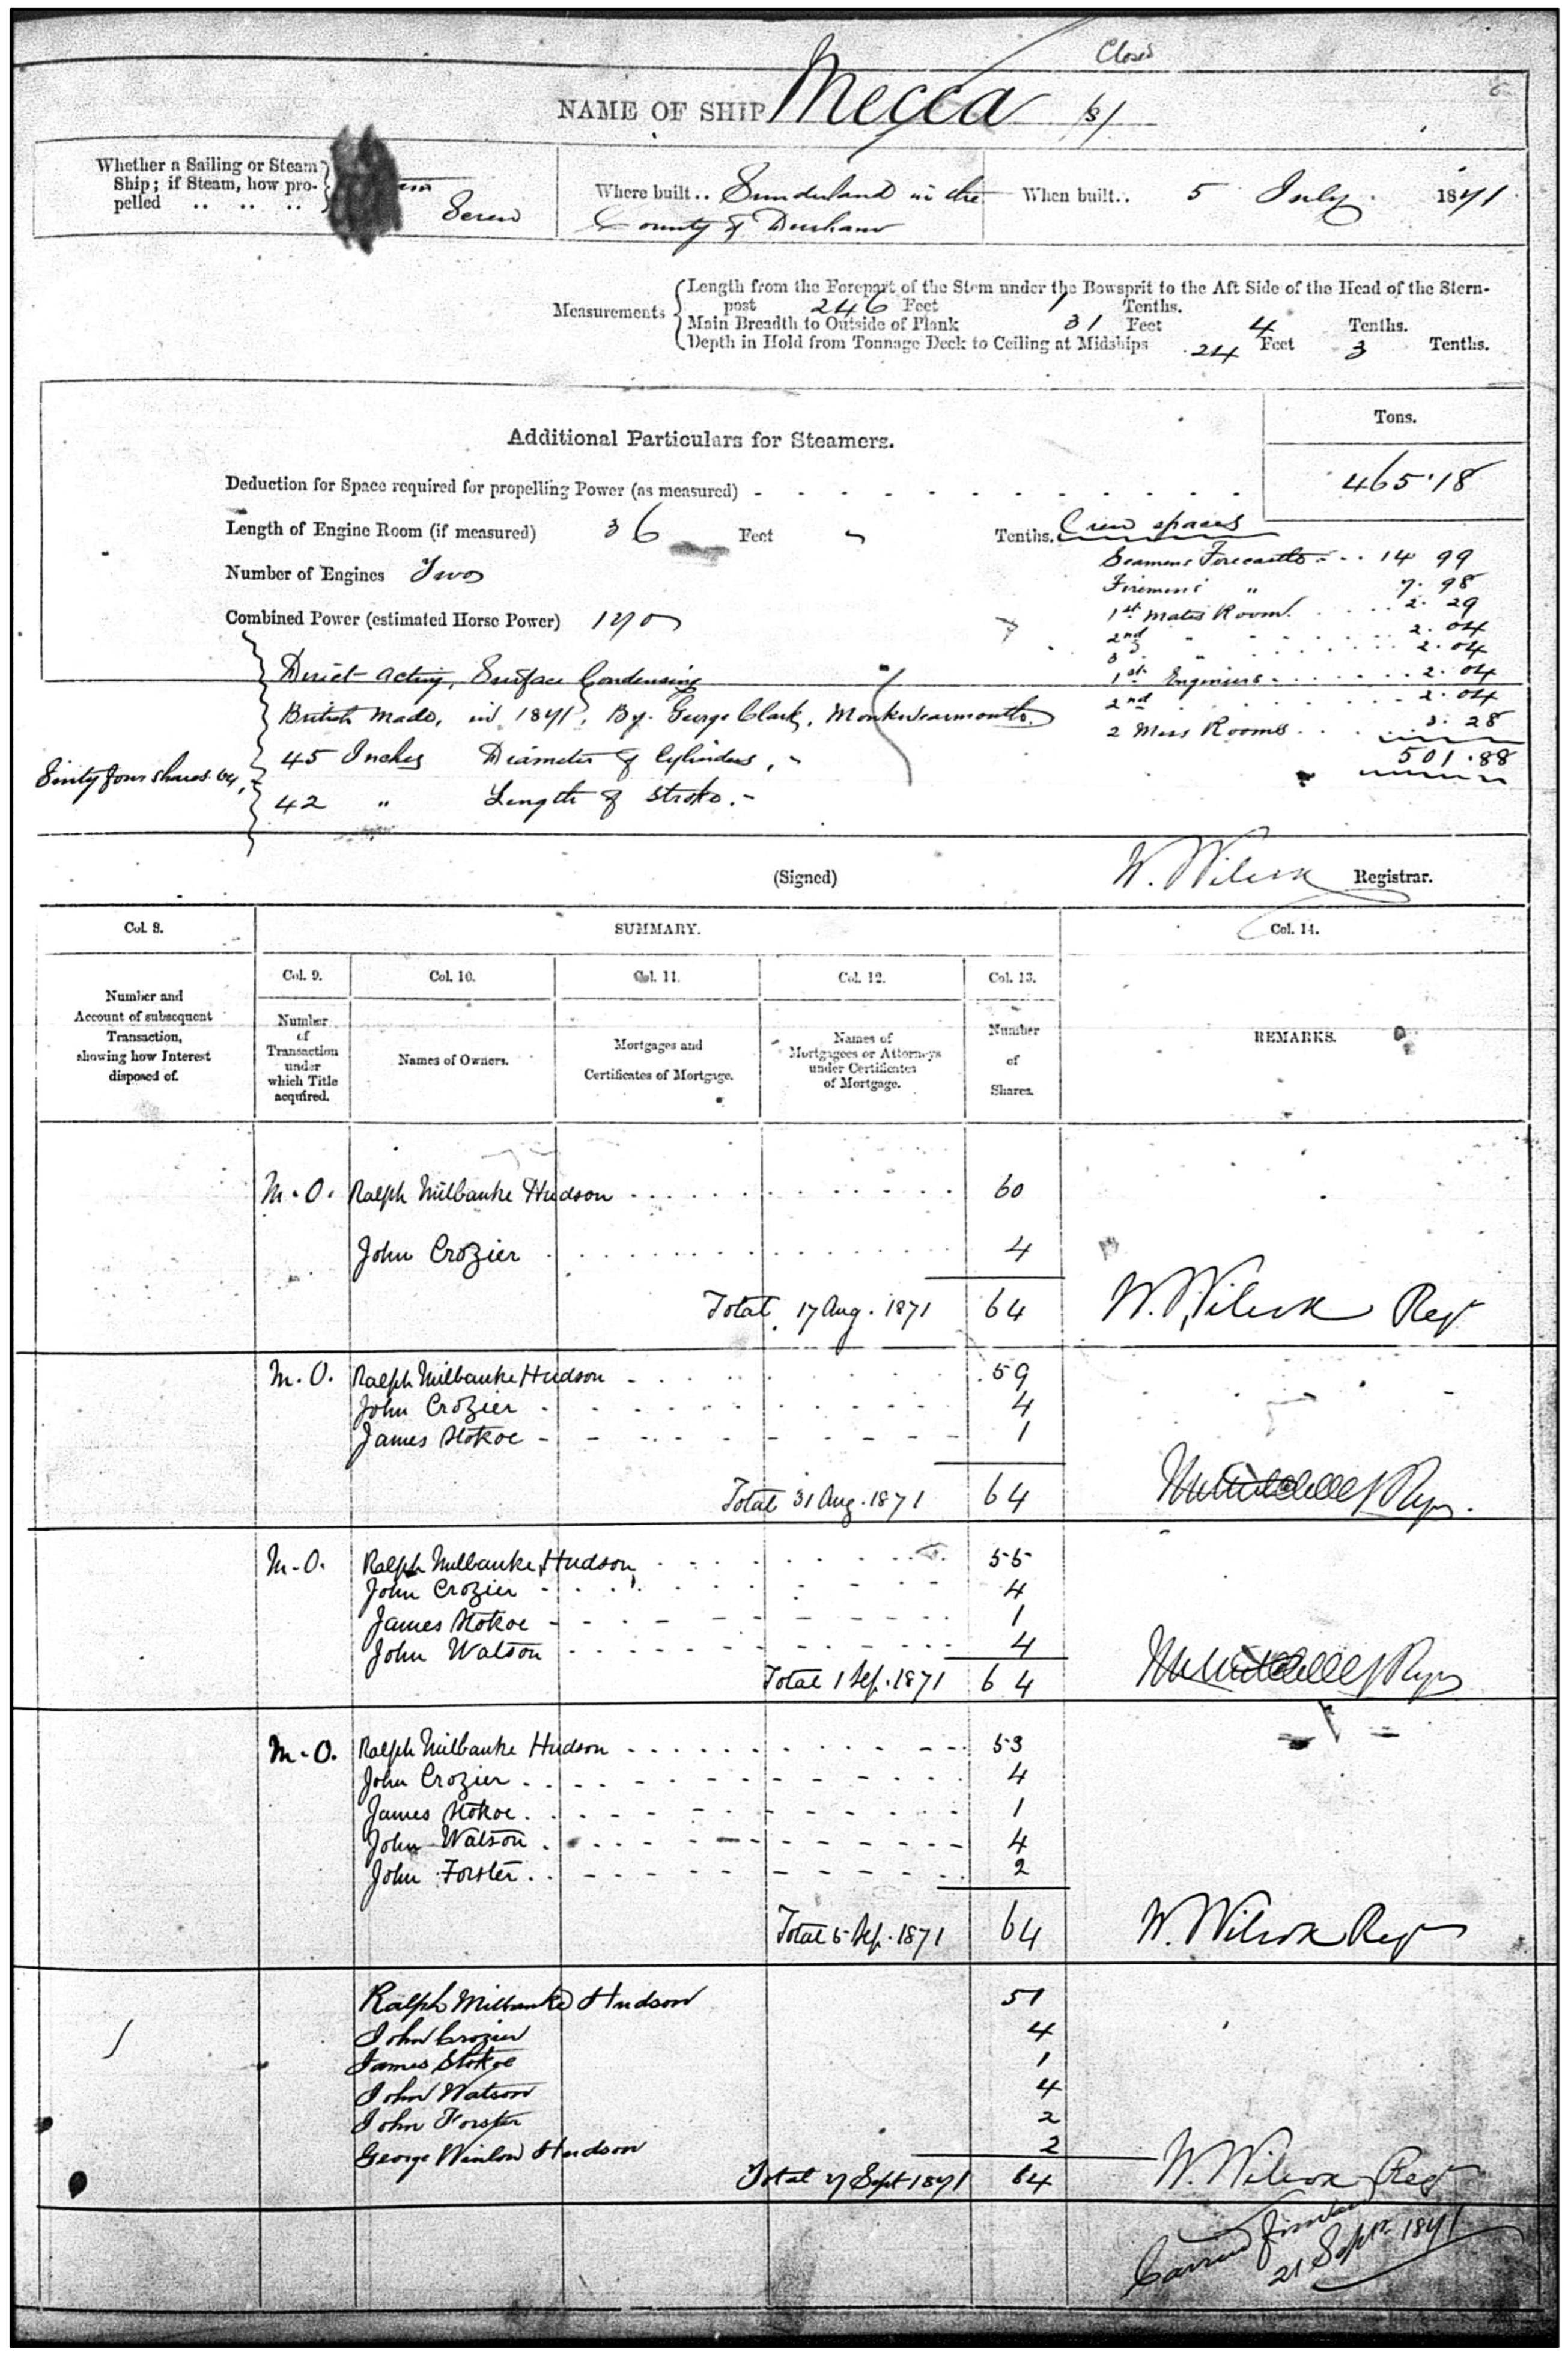 Closed
NAME OF SHIP Mecca (s)
Whether a Sailing or Steam
Ship; if Steam, how pro-
pelled .. .. .. Screw
Where built .. Sunderland in the
County of Durham
When built .. 5 July 1871
Measurements
Length from the Forepart of the Stem under the Bowsprit to the Aft Side of the Head of the Stern-
post 246 Feet 1 Tenths.
Main Breadth to Outside of Plank 31 Feet 4 Tenths.
Depth in Hold from Tonnage Deck to Ceiling at Midships 24 Feet 3 Tenths.
Tons.
Additional Particulars for Steamers.
Deduction for Space required for propelling Power (as measured) 465.18
Length of Engine Room (if measured) 36 Feet " Tenths.
Number of Engines Two
Combined Power (estimated Horse Power) 170
Crew spaces
Seamens Forecastle 14 99
Firemens " 7.98
1st Mates Room 2.29
2nd " 2.04
3 " 2.04
1st Engineers 2.04
2nd 2.04
2 Mess Rooms 3.28
501.88
Direct acting, Surface Condensing
British made, in 1871, By George Clark, Monkwearmouth
45 Inches Diameter of Cylinders,
42 " Length of Stroke.
Sixty four shares 64,
(Signed) W. Wilcox Registrar.
Col. 8.
Number and
Account of subsequent
Transaction,
showing how Interest
disposed of.
SUMMARY.
Col. 9.
Number
of
Transaction
under
which Title
acquired.
Col. 10.
Names of Owners.
Col. 11.
Mortgages and
Certificates of Mortgage.
Col. 12.
Names of
Mortgagees or Attorneys
under Certificates
of Mortgage.
Col. 13.
Number
of
Shares.
Col. 14.
REMARKS.
M.O. Ralph Milbanke Hudson 60
John Crozier 4
Total 17 Aug. 1871 64 W. Wilcox Regr
M.O. Ralph Milbanke Hudson 59
John Crozier 4
James Stokoe 1
Total 31 Aug. 1871 64
M.O. Ralph Milbanke Hudson 55
John Crozier 4
James Stokoe 1
John Watson 4
Total 1 Sep. 1871 64
M.O. Ralph Milbanke Hudson 53
John Crozier 4
James Stokoe 1
John Watson 4
John Forster 2
Total 5 Sep. 1871 64 W. Wilcox Regr
Ralph Milbanke Hudson 51
John Crozier 4
James Stokoe 1
John Watson 4
John Forster 2
George Winlow Hudson 2
Total 7 Sept 1871 64 W. Wilcox Regr
21 Septr 1871